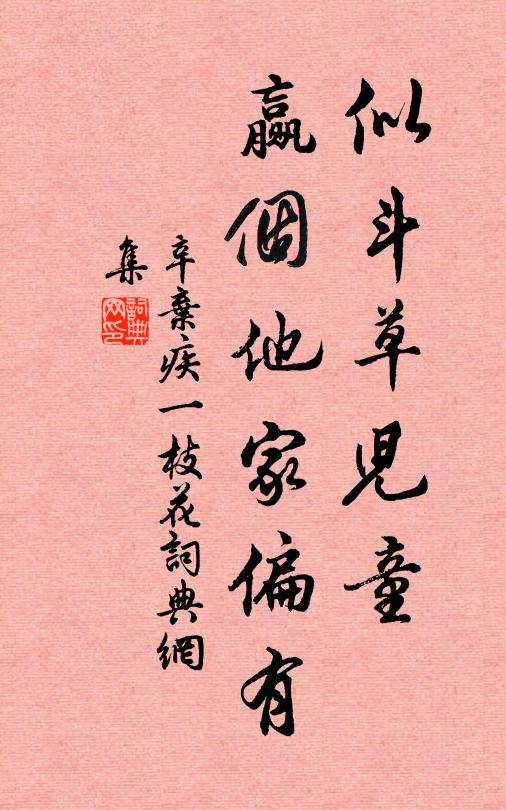 似斗草兒童
贏個他家偏有
辛棄疾一枝花詞典網
集
詞典
网印